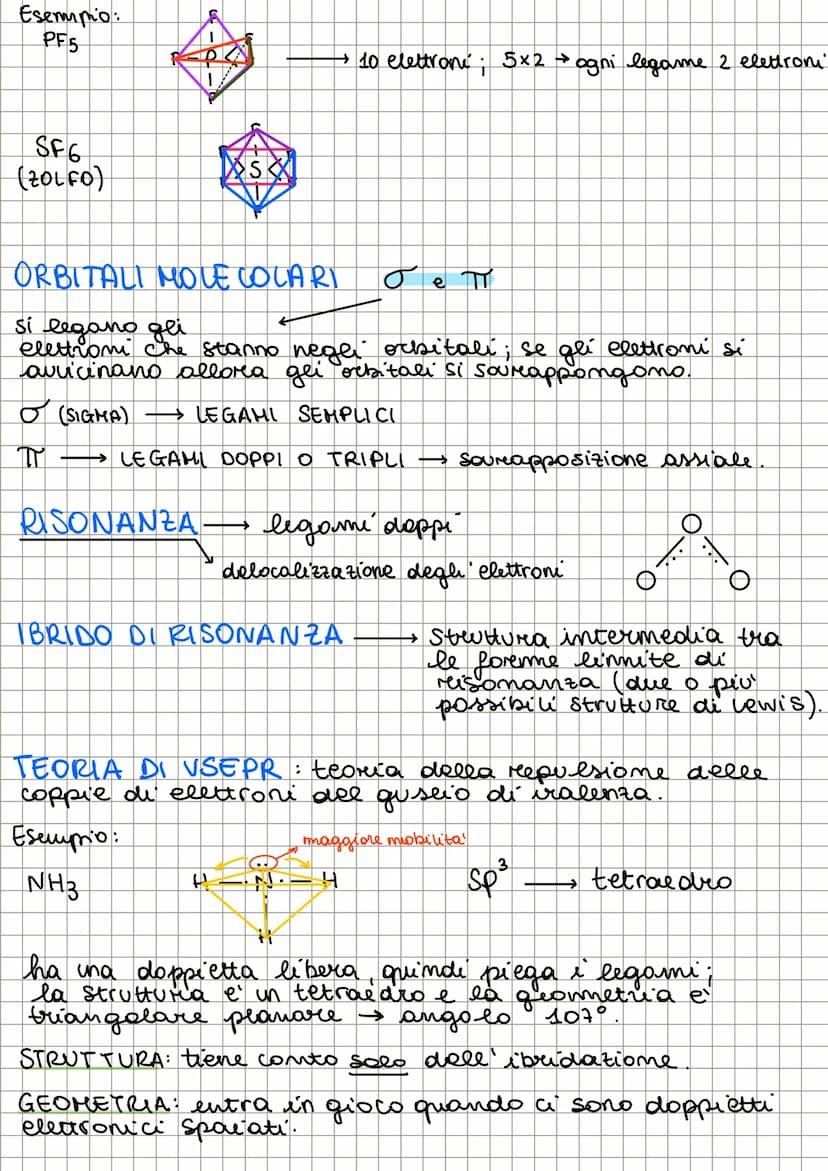 Esempio:
PF5
F
F - P F
F
→ 10 elettroni; 5x2 → ogni legame 2 elettroni
SF6
(ZOLFO)
F
S
F
ORBITALI MOLECOLARI σ e π
si legano gli
elettroni che stanno negli orbitali; se gli elettroni si
avvicinano allora gli orbitali si sovrappongono.
σ (SIGMA) → LEGAMI SEMPLICI
π → LEGAMI DOPPI O TRIPLI → sovrapposizione assiale.
RISONANZA → legami doppi
delocalizzazione degli elettroni
IBRIDO DI RISONANZA → struttura intermedia tra
le forme limite di
risonanza (due o più
possibili strutture di Lewis).
TEORIA DI VSEPR: teoria della repulsione delle
coppie di elettroni del guscio di valenza.
Esempio:
maggiore mobilita'
NH3
H - N - H
H
sp³ → tetraedro
ha una doppietta libera, quindi piega i legami;
la struttura e' un tetraedro e la geometria e'
triangolare planare → angolo 107°.
STRUTTURA: tiene conto solo dell'ibridazione.
GEOMETRIA: entra in gioco quando ci sono doppietti
elettronici spaiati.